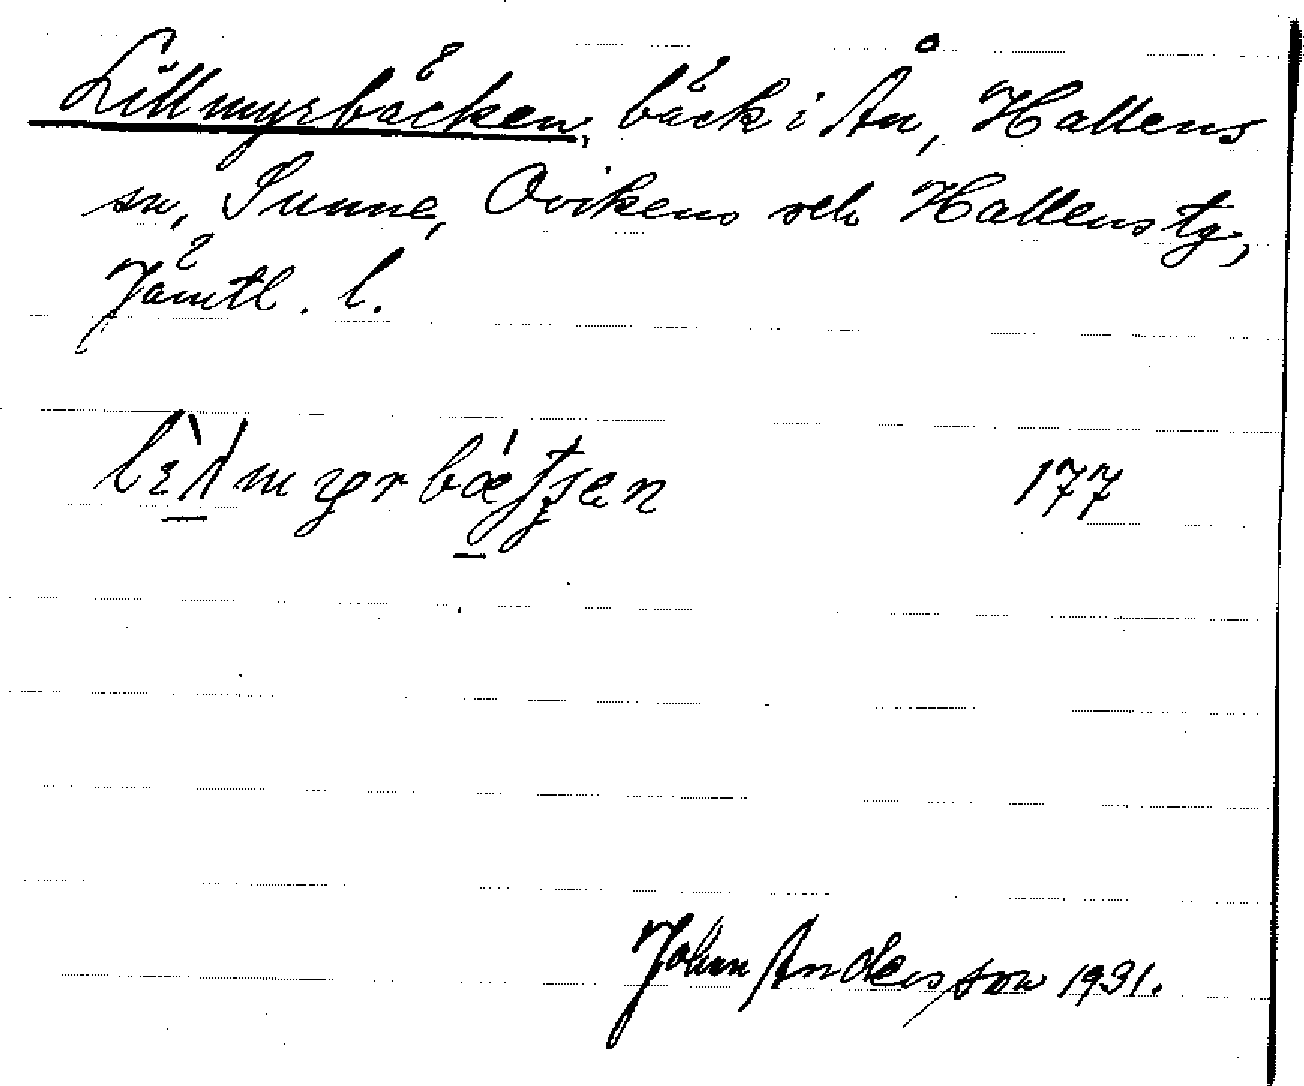 Lillmyrbäcken, bäck i Ån, Hallens
sn, Sunne, Ovikens och Hallens tg,
Jämtl. l.
177
John Andersson 1931.